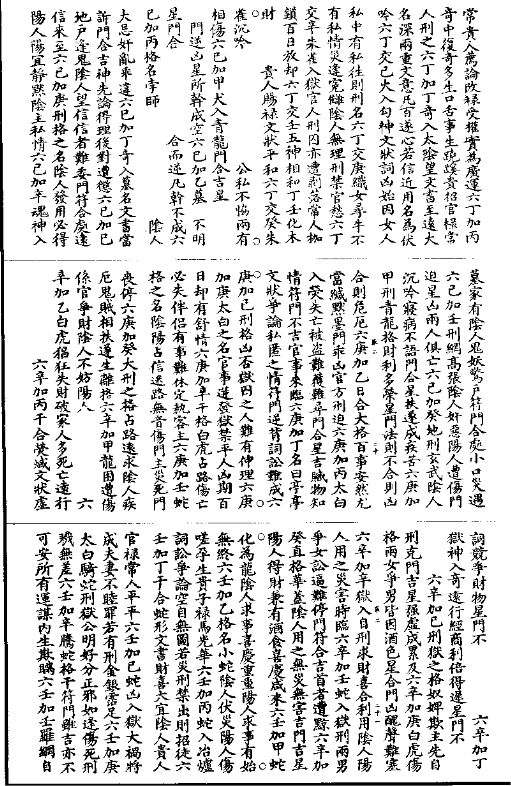 常貴人薦論改祿受權實為慶運六丁加丙
奇中復奇多生口舌事生蹺蹊貴招官祿常
人刑之六丁加丁奇入太陰望文書至遠大
名深兩重文意凡百遂心若信近用名為伏
吟六丁交己火入勾神文狀詞凶始因女人
私中有私往則刑名六丁交庚織女尋牛不
有私情災逢寃讎陰人無理刑禁官愁六丁
交辛朱雀入獄官人刑囚亦遭剥落常人枷
鎖百日放却六丁交壬五神相和丁壬化木
財 貴人賜祿文狀平和六丁交癸朱
雀沉吟 公私不恊兩有
相傷六己加甲犬入青龍門合吉星
門迷凶星所幹成空六己加乙墓 不明
星門合 合而遂凡幹不成六
己加丙格名孛師 陰人
大忌奸亂乖違六己加丁奇入墓名文書當
訴門合吉神先論得理後對遭愆六己加己
地户逢鬼陰人望信信者難委門符合處遠
信來至六己加庚刑格之名陰人發用必得
陽人陽宜靜默陰主私情六己加辛魂神入
墓家有陰人鬼妖驚户符門合處小口災遇
六己加壬刑網高張陰人奸惡陽人遭傷門
迫星凶兩人俱亡六己加癸地刑玄武陰人
沉吟寢病不語門合星扶遂成疾苦六庚加
甲刑青龍格財利多榮星門法則不合則凶
合則危厄六庚加乙日合大格百事安然尤
當緘默墨門乖凶官方刑迫六庚加丙太白
入熒失亡被盜難獲難尋門合星吉賊物知
情符門不吉官事來臨六庚加丁名曰亭亭
文狀爭論私匿之情符門逆背詞訟難成六
庚加己刑格凶否獄囚之人難有伸理六庚
加庚太白之名官事遭發獄禁平人凶期百
日却有舒情六庚加辛干格白虎占路傷亡
必失伴侶有事難休定執客主六庚加壬蛇
格之名陰陽占信迷路無音傷門主災死門
喪停六庚加癸大刑之格占路遠求陰人疾
厄鬼賊相扶遭生離格六辛加甲龍困遭傷
係官爭財陰人不妨陽人 六
辛加乙白虎猖狂失財破家人多死亡遠行
六辛加丙干合熒滅文狀虛
詞競爭財物星門不 六辛加丁
獄神入奇遠行經商利倍得還星門不
六辛加己刑獄之格奴婢欺主先自
刑克門吉星强虛成累及六辛加庚白虎傷
格兩女爭男皆因酒色星合門凶醜聲難塞
六辛加辛獄入自刑求財喜合利用陰人陽
人用之災害時臨六辛加壬蛇入獄刑兩男
爭女訟逼難停門符合吉首者遭黥六辛加
癸直格華蓋陰人用之無災無害吉門吉星
陽人得財兼有酒食喜慶咸來六壬加甲蛇
化為龍陰人求事喜慶重重陽人求事有始
無終六壬加乙格名小蛇陰人伏災陽人傷
嗟孕生貴子祿馬光華六壬加丙蛇入冶爐
詞訟爭論空自無圖若災刑禁出則招徒六
壬加丁干合蛇形文書財喜大宜陰人貴人
官祿常人平平六壬加己蛇凶入獄大禍將
成夫妻不睦罪若有刑金常足六壬加庚
太白騎蛇刑獄公明好分正邪如逢傷死刑
戮無差六壬加辛騰蛇格干符門雖吉亦不
可安所有運謀内生欺瞞六壬加壬羅網自